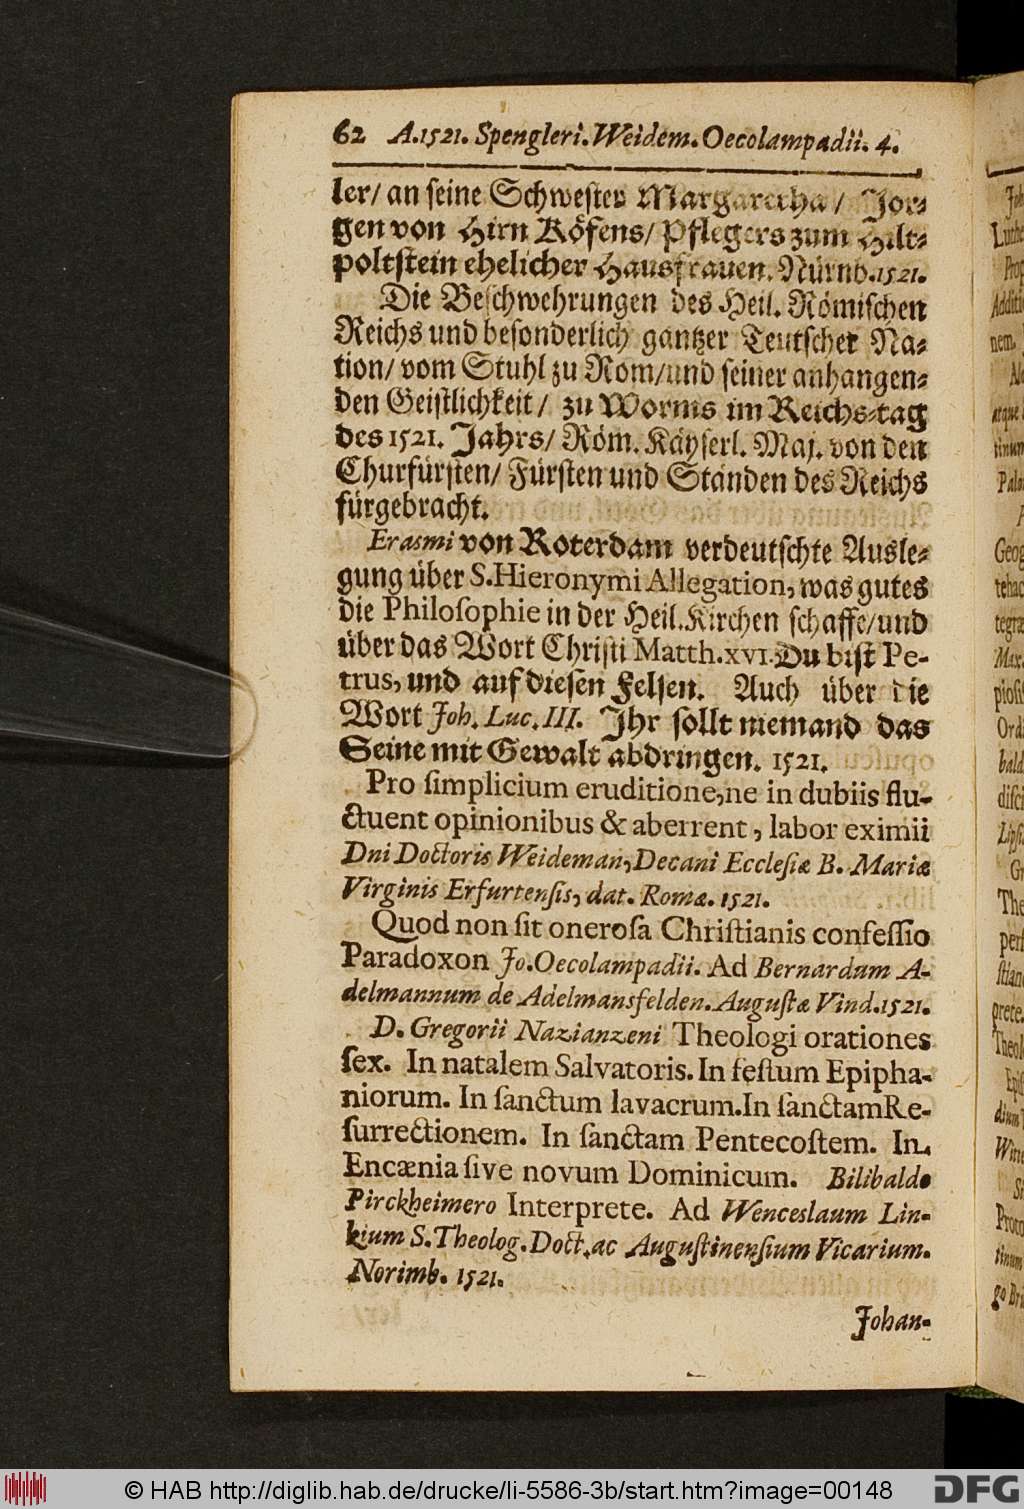 62 A.1521. Spengleri. Weidem. Oecolampadii. 4.
ler/ an seine Schwester Margaretha/ Jor⸗
gen von Hirn Köfens/ Pflegers zum Hilt⸗
poltstein ehelicher Hausfrauen. Nürnb. 1521.
Die Beschwehrungen des Heil. Römischen
Reichs und besonderlich gantzer Teutscher Na⸗
tion/ vom Stuhl zu Rom/ und seiner anhangen⸗
den Geistlichkeit/ zu Worms im Reichs⸗tag
des 1521. Jahrs/ Röm. Käyserl. Maj. von den
Churfürsten/ Fürsten und Ständen des Reichs
fürgebracht.
Erasmi von Roterdam verdeutschte Ausle⸗
gung über S. Hieronymi Allegation, was gutes
die Philosophie in der Heil. Kirchen schaffe/ und
über das Wort Christi Matth. XVI. Du bist Pe-
trus, und auf diesen Felsen. Auch über die
Wort Joh. Luc. III. Ihr sollt niemand das
Seine mit Gewalt abdringen. 1521.
Pro ſimplicium eruditione, ne in dubiis flu-
ctuent opinionibus & aberrent, labor eximii
Dni Doctoris Weideman, Decani Eccleſiæ B. Mariæ
Virginis Erfurtenſis, dat. Romæ. 1521.
Quod non ſit oneroſa Chriſtianis confeſſio
Paradoxon Jo. Oecolampadii. Ad Bernardum A-
delmannum de Adelmansfelden. Auguſtæ Vind. 1521.
D. Gregorii Nazianzeni Theologi orationes
ſex. In natalem Salvatoris. In feſtum Epipha-
niorum. In ſanctum lavacrum. In ſanctam Re-
ſurrectionem. In ſanctam Pentecoſtem. In
Encænia ſive novum Dominicum. Bilibaldo
Pirckheimero Interprete. Ad Wenceslaum Lin-
kium S. Theolog. Doct. ac Auguſtinenſium Vicarium.
Norimb. 1521.
Johan-
© HAB http://diglib.hab.de/drucke/li-5586-3b/start.htm?image=00148
DFG